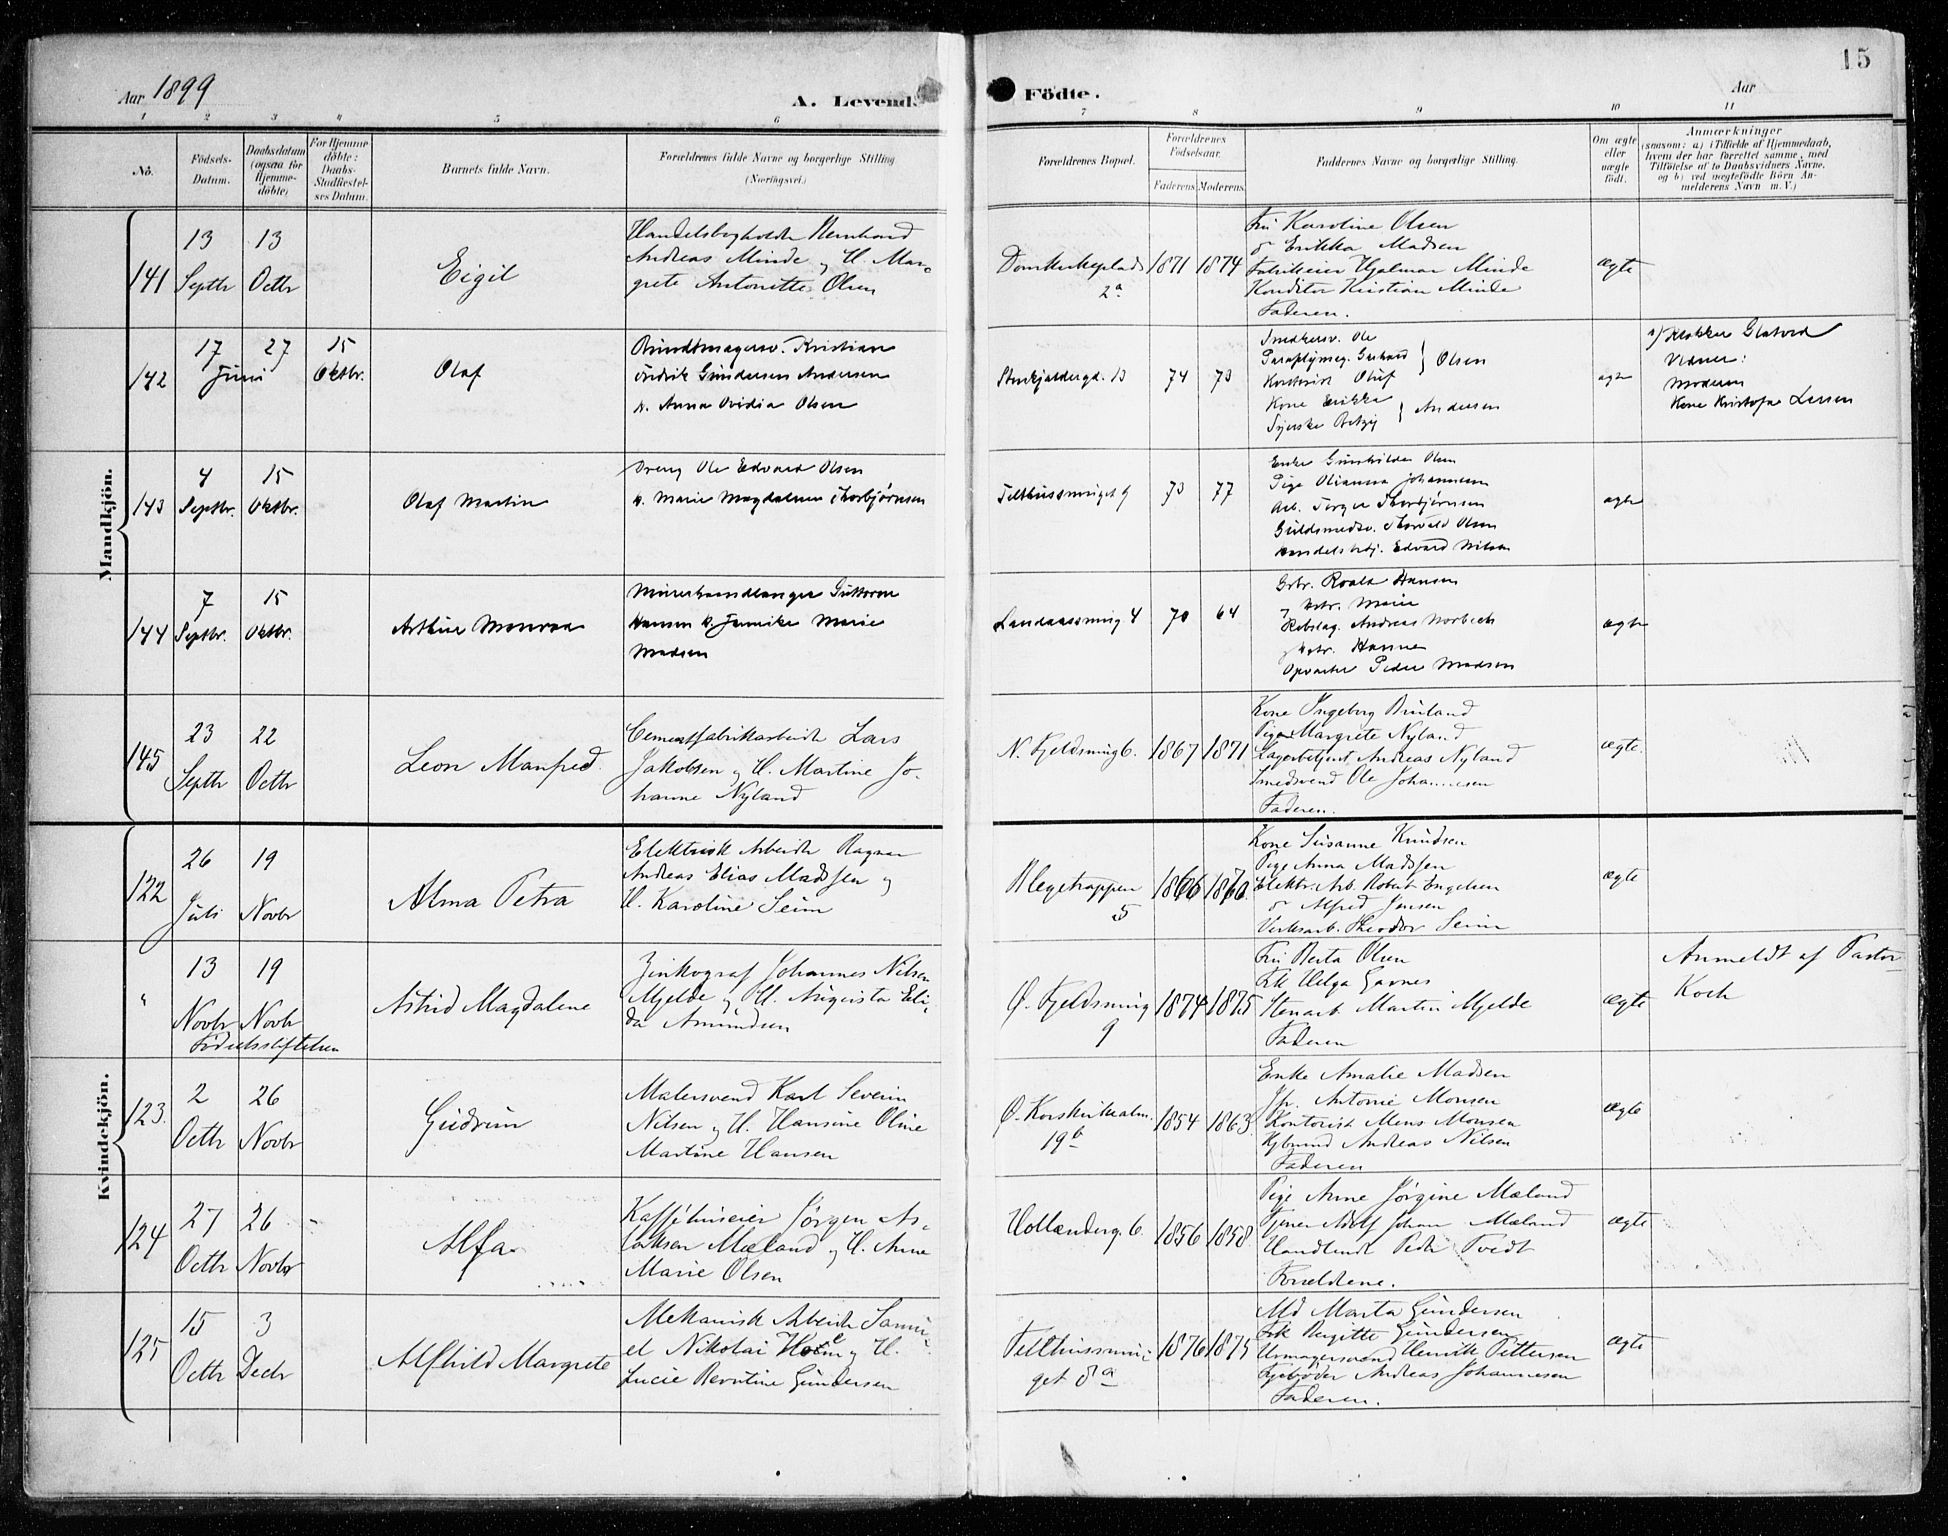 Aar 1899
A. Levende
Födte.
Aar
15
1 2 3 4 5 6 7 8 9 10 11
No.
Födsels-Datum.
Daabsdatum (ogsaa for Hjemme-döbte)
For Hjemme-döbte: Daabs-Stadfæstel-ses Datum.
Barnets fulde Navn.
Forældrenes fulde Navne og borgerlige Stilling (Næringsvei.)
Forældrenes Bopæl.
Forældrenes Födselsaar.
Faderens Moderens.
Faddernes Navne og borgerlige Stilling.
Om ægte eller uægte födt.
Anmærkninger
(saasom: a) i Tilfælde af Hjemmedaab, hvem der har forrettet samme, med Tilföielse af to Daabsvidners Navne, og b) ved uægtefödte Börn An-melderens Navn m. V.)
Mandkjön.
141
13 Septbr
13 Octbr
Eigil
Handelsbogholder Bernhard
Andreas Minde og H. Mar-
grete Antonette Olsen
Domkirkeplads
2a
1871 1874
Fru Karoline Olsen
" Erikka Madsen
Fabrikeier Hjalmar Minde
Konditor Kristian Minde
Faderen.
ægte
142
17 27
Juni
15 Oktbr.
Olaf
Bundtmagersv. Kristian
Fredrik Gundersen Andersen
H. Anna Ovidia Olsen
Storkjeldergd. 13
74 73
Snedkersv. Ole
Paraplymag. Gerhard
Kontorist Oluf
} Olsen
Kone Erikka
Syerske Betzy
} Andersen
ægte
a/ Klokker Glatved
Vidner:
Moderen
Kone Kristofa Larsen
143
4 Septbr.
15 Oktbr.
Olaf Martin
Dreng Ole Edvard Olsen
H. Marie Magdalene Thorbjørnsen
Telthussmuget 9
73 77
Enke Gunhilda Olsen
Pige Olianna Johannesen
Arb. Torger Thorbjørnsen
Guldsmedsv. Thorvald Olsen
Handelsbetj. Edvard Nilsen
ægte
144
7 Septbr.
15 Oktbr.
Arthur Monrad
Murerhaandlanger Guttorm
Hansen H. Jannike Marie
Madsen
Landaassmug 4
70 64
Grbr. Roald Hansen
Hstr. Marie
Rebslag. Andreas Norbech
Hstr. Hanna
Opvarter Peder Madsen
ægte
145
23 Septbr
22 Octbr
Leon Manfred.
Cementfabrikarbeider Lars
Jakobsen og H. Martine Jo-
hanne Nyland
N. Fjeldsmug 6.
1867 1871
Kone Ingeborg Bruland
Pige Margrete Nyland
Lagerbetjent Andreas Nyland
Smedsvend Ole Johannesen
Faderen.
ægte.
Kvindekjön.
122
26 Juli
19 Novbr
Alma Petra
Elektrisk Arbeider Ragnar
Andreas Elias Madssen og
H. Karoline Seim
Blegetrappen
5
1866 1870.
Kone Susanne Knudsen
Pige Anna Madssen
Elektr. Arb. Robert Engelsen
" Alfred Jensen
Verksarb. Theodor Seim
ægte
"
13 Novbr
19 Novbr
Födselsstiftelsen
Astrid Magdalene
Zinkograf Johannes Nilsen
Mjelde og H. Augusta Eli-
da Amundsen
Ø. Fjeldsmug
9
1874 1875
Fru Berta Olsen
Frk Helga Garnes
Stenarb. Martin Mjelde
Faderen
ægte
Anmeldt af Pastor
Koch
123.
2 Octbr
26 Novbr
Gudrun
Malersvend Karl Severin
Nilsen og H. Hansine Oline
Martine Hansen
Ø. Korskirkealm.
19b
1854 1863.
Enke Amalie Madsen
Jfr. Antonie Monsen
Kontorist Mons Monsen
Kjbmnd Andreas Nilsen
Faderen
ægte
124
27 Octbr
26 Novbr
Alfa
Kaffehuseier Jörgen As-
laksen Mæland og H. Anne
Marie Olsen
Hollenderg. 6.
1856 1858.
Pige Anne Jörgine Mæland
Tjener Adolf Johan Mæland
Handlende Peder Tvedt
Forældrene.
ægte
125
15 Octbr
3 Decbr
Alfhild Margrete
Mekanisk Arbeider Samu-
el Nikolai Holm og H.
Lucie Berntine Gundersen
Telthussmu-
get 8a
1876 1875
Md Marta Gundersen
Frk Birgitte Gundersen
Urmagersvend Henrik Pettersen
Fyrböder Andreas Johannesen
Faderen.
ægte